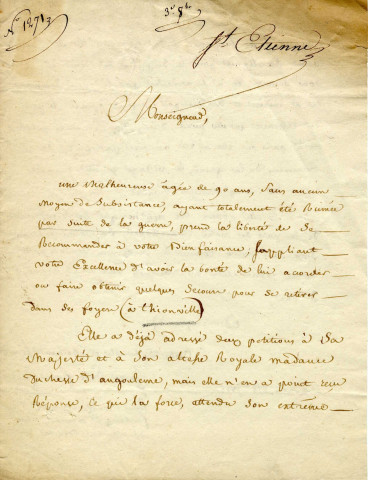 N° 12713
3e Son
St Etienne
Monseigneur,
une Malheureuse agée de 90 ans, Sans aucun
moyen de Subsistance, ayant totalement été Ruinée
par suite de la guerre, prend la liberté de Se
Recommander à votre Bienfaisance, Suppliant
votre Excellence d'avoir la bonté de lui acorder
ou faire obtenir quelques Secours pour se retirer
dans ses foyers (à thionville)
Elle a déjà adressé deux pétitions à Sa
Majesté et à Son altesse Royale madame
Duchesse d'angouleme, mais elle n'en a point reçu
Réponse, Ce qui la force, attendu Son extrême